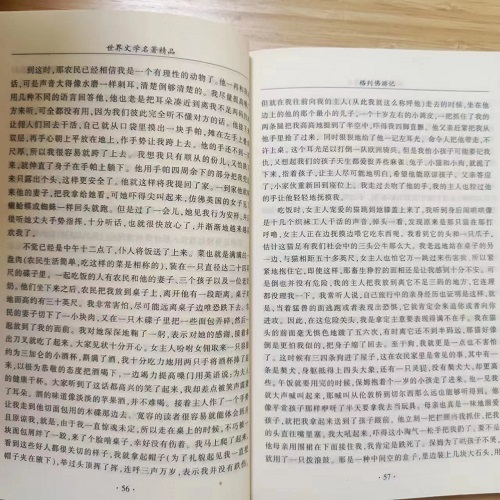 世界文学名著精品
到这时，那农民已经相信我是一个有理性的动物了。他一再和我
说，可是声音大得像水磨一样刺耳，清楚倒够清楚的。我尽量提高嗓子
用几种不同的语言回答他，他也老是把耳朵凑近到离我不足两码的地
方来听，可全都没有用，因为我们彼此完全听不懂对方的话。他接着
让佣人们回去干活，自己就从口袋里摸出一块手帕，摊在左手上叠
手心朝上平放在地上，作手势让我跨上去。他的手还不到一
厚，所以我很容易就跨了上去。我想我只有顺从的份儿，又怕跌
来，就伸直了身子在手帕上躺下。他用手帕四周余下的部分把我兜
来只露出个头，这样更安全了。他就这样将我提回了家。一到家他就
他的妻子，把我拿给她看，可她吓得尖叫起来，仿佛英国的女子见
一样回头就跑。但是过了一会儿，她见我行为安详，
很听她丈夫手势指挥，十分听话，也就很快放心了，并渐渐地越来越
欢我了。
不觉已经是中午十二点了，仆人将饭送了上来。菜也就是满满的
盘肉（农民生活简单，吃这样的菜是相称的），装在一只直径达二十四
尺的碟子里。一起吃饭的人有农民和他的妻子、三个孩子以及一位老
奶。他们坐下来之后，农民把我放到桌子上，离开他有一段距离，桌子
地面高约有三十英尺。我非常害怕，尽可能远离桌子边唯恐跌下去。
的妻子切下了一小块肉，又在一只木碟子里把一些面包弄碎，然后
起放到了我的面前。我对她深深地鞠了一躬，表示对她的感谢，接着
出刀叉就吃了起来。大家见状十分开心。女主人吩咐女佣取来一只
约为三加仑的小酒杯，斟满了酒，我十分吃力地用两只手将酒杯捧了
来，以极为恭敬的态度把酒喝下，一边竭力提高嗓门用英语说：为
的健康干杯。大家听到了这话都高兴的笑了起来，我却差点被笑声震
了耳朵。酒的味道像淡淡的苹果酒，并不难喝。接着主人作了一个手
让我走到他切面包用的木碟那边去。宽容的读者很容易就能体会到
且原谅我，就是，由于我一直惊魂未定，所以走在桌上的时候，不巧
块面包屑绊了一跤，来了个脸啃桌子，幸好没有伤着。我马上爬了起来，
看到这些好人都很关切的样子，我就拿起帽子（为了礼貌起见我一直
帽子夹在腋下），举过头顶挥了挥，连呼三声万岁，表示我并没有跌伤。
· 56 ·
格列佛游记
但就在我往前向我的主人（从此我就这么称呼他）走去的时候，坐在他
边上的他的那个最小的儿子，一个十岁左右的小调皮，一把抓住了我的
两条腿把我高高地提到了半空中，吓得我四肢直颤。他父亲赶紧把我从
他手里抢了过来，同时狠狠地给了他一记左耳光，命令人把他带走，不
许上桌。这个耳光足以打倒一队欧洲骑兵。但是我怕孩子可能要记我
仇，又想起我们的孩子天生都爱捉弄些麻雀、兔子、小猫和小狗，就跪了下
来，指着孩子，让主人尽可能地明白，希望他能原谅孩子。父亲答应
了，小家伙重新回到座位上。我走过去吻了他的手，我的主人也拉过他
的手让他轻轻地抚摸我。
吃饭时，女主人宠爱的猫跳到她膝盖上来了。我听到身后闹哄哄像
是十几个织袜工人在干活的声音，掉头一看，发现原来是那只猫在那
打呼噜，女主人正在边抚摸边喂它吃东西呢。我看到它的头和一只爪子，
估计这猫是有我们社会中的三头公牛那么大。我老远地站在桌子的另
一边，与猫相距五十多英尺，女主人也怕它万一跳过来伤害我，所以紧
紧地抱住它，即使如此，那畜生狰狞的面相还是让我感到十分不安。
是倒也并没有危险，我的主人把我放到离它不足三码的地方，它连理
都没理我一下。我常听人说，自己旅行中的亲身经历也证明是这样，就
是当着猛兽的面逃跑或者表现出恐惧，它就肯定会来追你或者向你
进攻。因此，在这危险关头，我是拿定主意要表现得满不在乎。我在猫头
的前面毫无惧色地踱了五六次，有时离它还不到半码远，那猫好像
更怕我似的，把身子缩了回去。至于狗，我就更是一点也不害怕
了。这时候有三四条狗进了屋子，这在农民家里是常见的事，其中有一
条是獒犬，身躯抵得上四头大象，还有一只灵提，没有獒犬大，却更高
些。午饭就要用完的时候，保姆抱着个一岁的小孩走了进来。他一见我
就大声喊叫起来，那喊叫从伦敦桥到切尔西那么远也够听得到。他
像平常孩子那样咿呀了半天要拿我去当玩具。母亲也真是一味地溺爱
孩子，就把我拿起来送到了孩子跟前，他立刻一把拦腰将我抓住，把我
的头直往嘴里塞，我大吼起来，吓得这小淘气一松手把我扔了。要
不是他母亲用围裙在下面接住我，我肯定是跌死了。保姆为了哄孩子不哭
就用了一只拨浪鼓。那是一种中空的盒子，里边装上几块大石头，用
· 57 ·